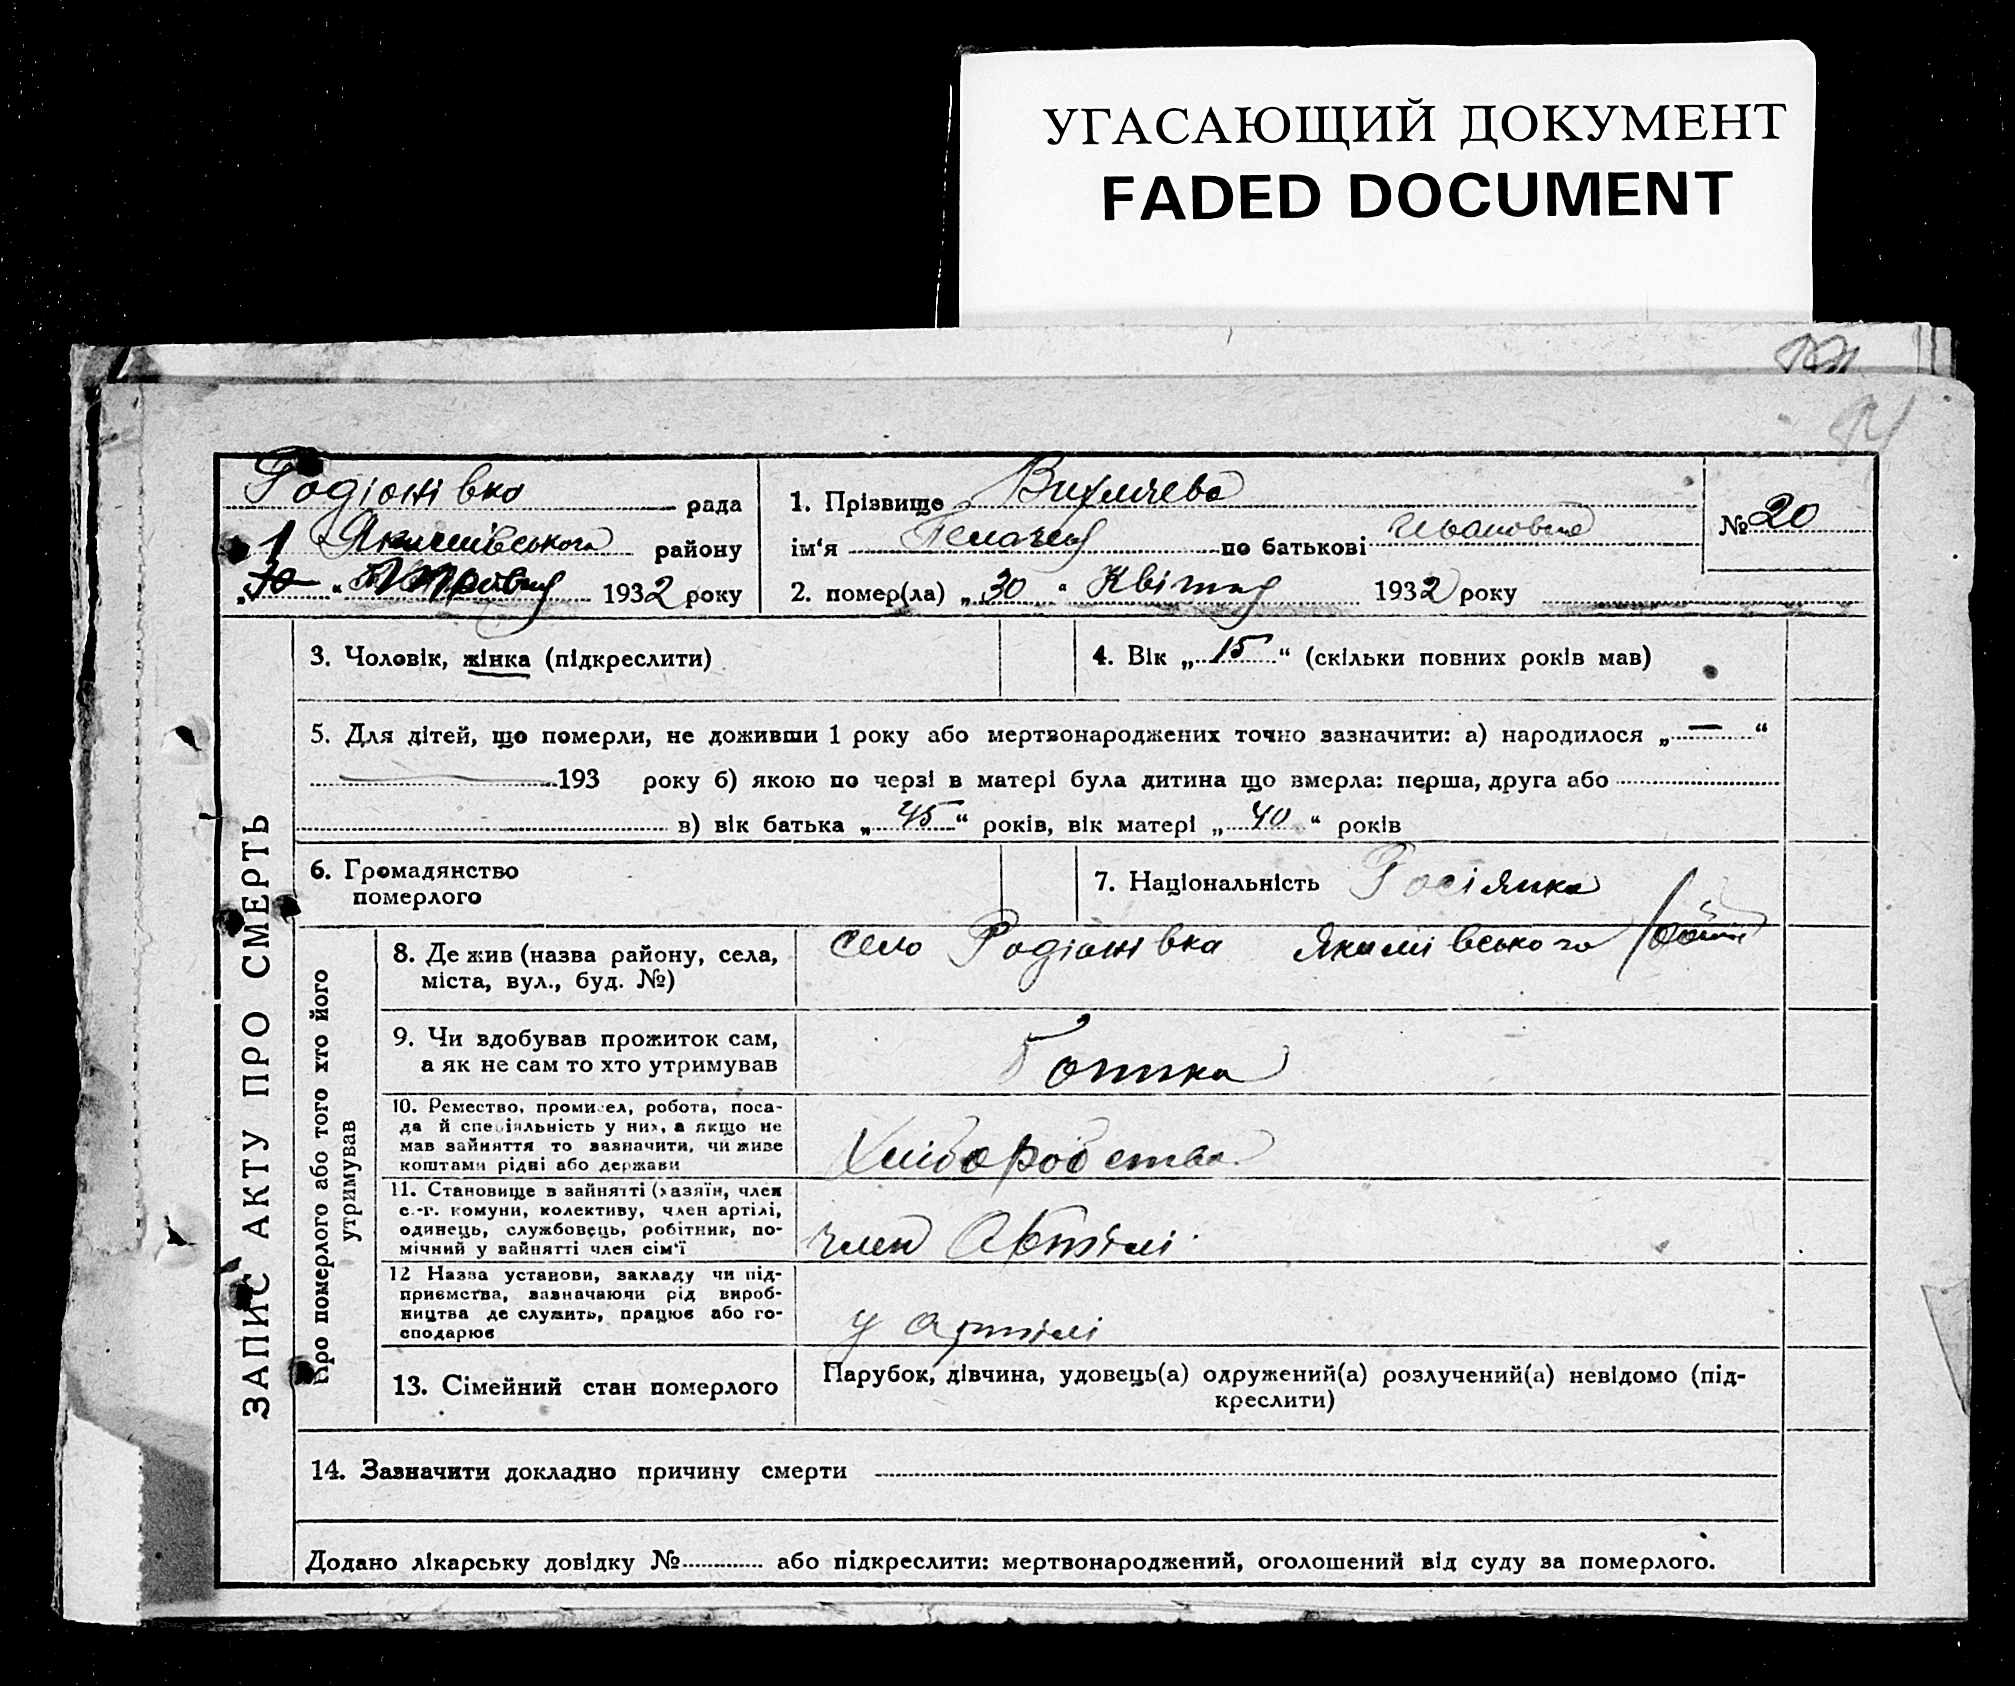 УГАСАЮЩИЙ ДОКУМЕНТ
FADED DOCUMENT
Родіонівка рада
1 Якимівського району
„30“ 1932 року
1. Прізвище
ім'я Пелагея по батькові Ивановна
№ 20
2. помер(ла) „30“ Квітня 1932 року
3. Чоловік, жінка (підкреслити)
4. Вік „15“ (скільки повних років мав)
5. Для дітей, що померли, не доживши 1 року або мертвонароджених точно зазначити: а) народилося „—“
193 року б) якою по черзі в матері була дитина що вмерла: перша, друга або
в) вік батька „45“ років, вік матері „40“ років
6. Громадянство
померлого
7. Національність Росіянка
ЗАПИС АКТУ ПРО СМЕРТЬ
Про померлого або того хто його
утримував
8. Де жив (назва району, села,
міста, вул., буд. №)
село Родіонівка Якимівського
9. Чи здобував прожиток сам,
а як не сам то хто утримував
10. Ремество, промисел, робота, поса-
да й спеціяльність у них, а якщо не
мав зайняття то зазначити, чи живе
коштами рідні або держави
Хліборобства
11. Становище в зайнятті (хазяїн, член
с.-г. комуни, колективу, член артілі,
одинець, службовець, робітник, по-
мічний у зайнятті член сім'ї
член Артілі
12 Назва установи, закладу чи під-
приємства, зазначаючи рід вироб-
ництва де служить, працює або го-
сподарює
у артілі
13. Сімейний стан померлого
Парубок, дівчина, удовець(а) одружений(а) розлучений(а) невідомо (під-
креслити)
14. Зазначити докладно причину смерти
Додано лікарську довідку № або підкреслити: мертвонароджений, оголошений від суду за померлого.